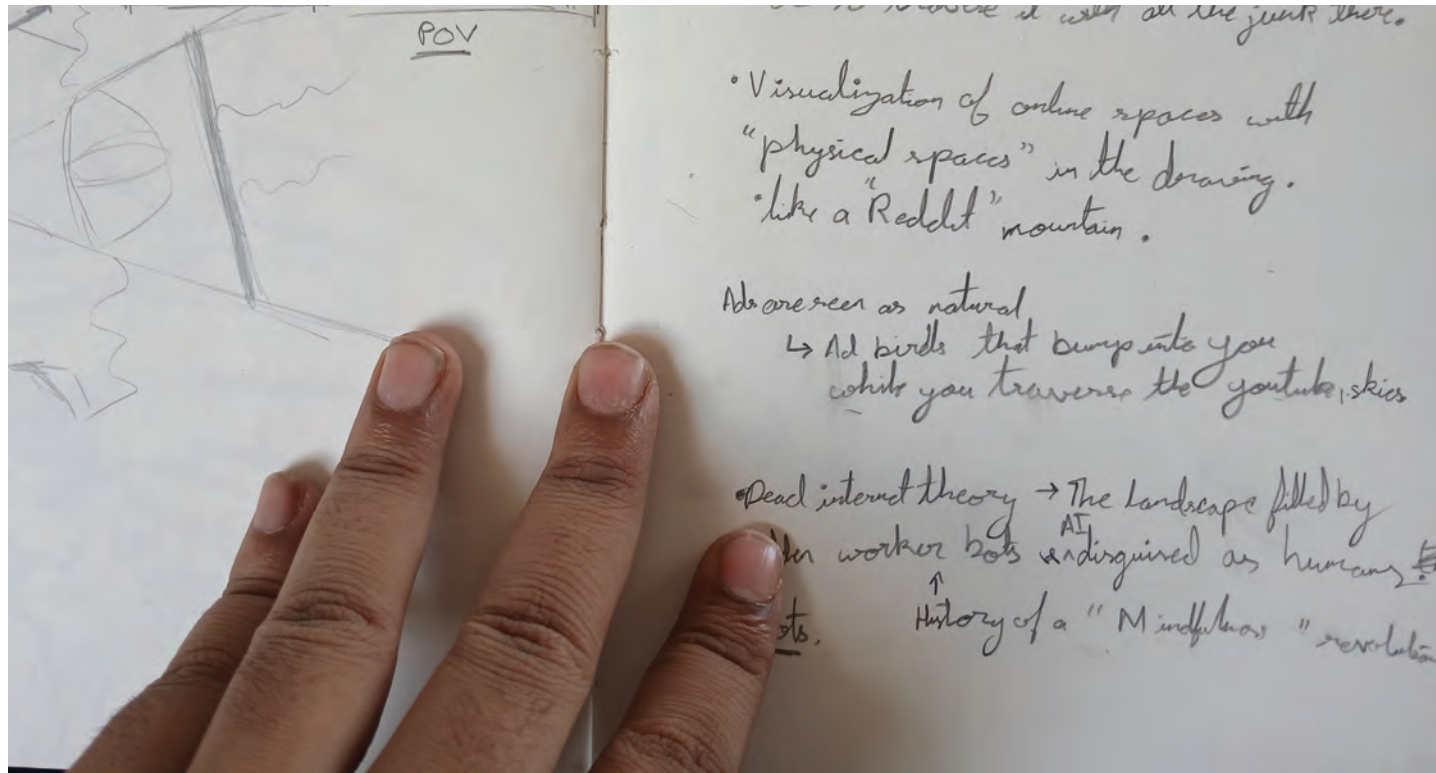 POV
it with all the junk there.
• Visualization of online spaces with
"physical spaces" in the drawing.
• like a "Reddit" mountain.
Ads are seen as natural
↳ Ad birds that bump into you
while you traverse the youtube skies
• Dead internet theory → The Landscape filled by
worker bots AI disguised as humans
↑
History of a "Mindfulness" revolution